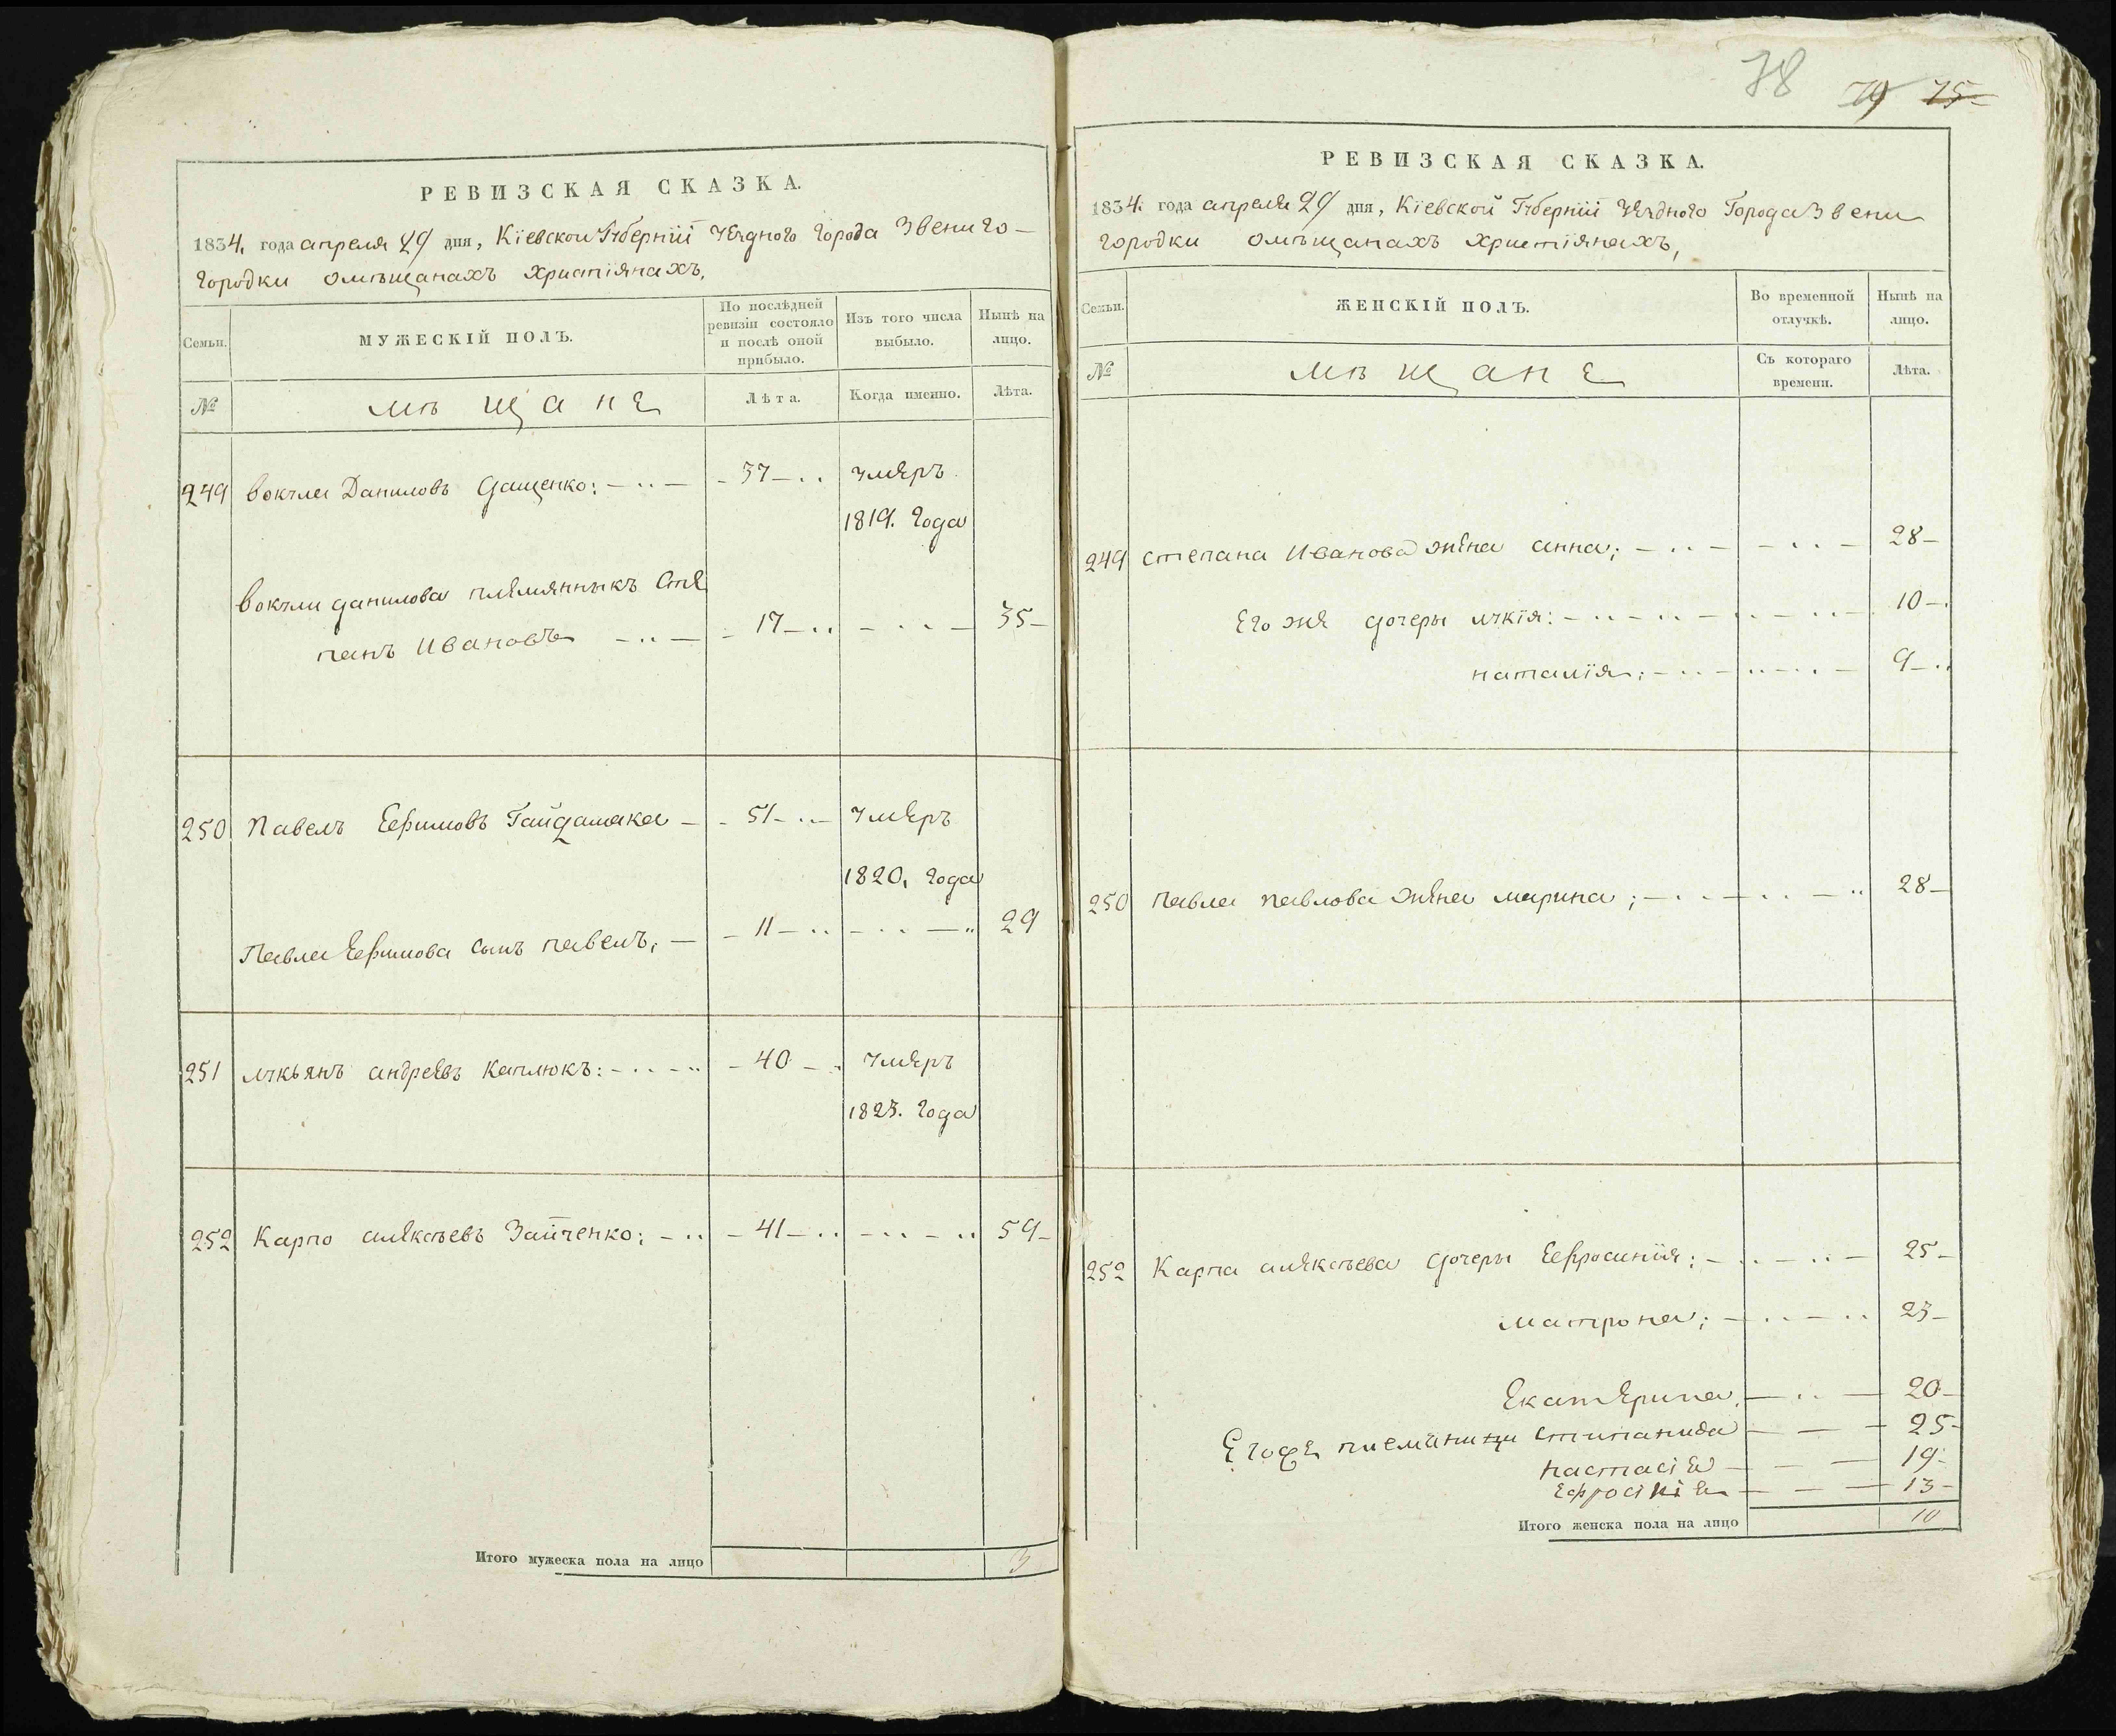 РЕВИЗСКАЯ СКАЗКА.
1834. года апреля 29 дня, Кіевской Губерніи Уездного Города Звениго-
Городки о мѣщанахъ христіянахъ,
Семьи.
МУЖЕСКІЙ ПОЛЪ.
По послѣдней ревизіи состояло и послѣ оной прибыло.
Изъ того числа выбыло.
Нынѣ на лицо.
№
мѣщане
Лѣта.
Когда именно.
Лѣта.
249 Вокула Даниловъ Дащенко: 37 умеръ
1819. года
Вокулы данилова племянныкъ Сте
панъ Ивановъ 17 35
250 Павелъ Ефимовъ Гайдамака 51 умеръ
1820. года
Павла Ефимова сынъ павелъ, 11 29
251 лукьянъ андреевъ Каплюкъ: 40 умеръ
1823. года
252 Карпо алексѣевъ Зайченко; 41 59
Итого мужеска пола на лицо 3
78 79 75
РЕВИЗСКАЯ СКАЗКА.
1834. года апреля 29 дня, Кіевской Губерніи Уезднаго Города Звени
городки о мѣщанахъ христіянахъ,
Семьи.
ЖЕНСКІЙ ПОЛЪ.
Во временной отлучкѣ.
Нынѣ на лицо.
№
мѣщане
Съ котораго времени.
Лѣта.
249 степана Иванова жена анна; 28
Его же дочеры лукія: 10
наталія; 9
250 павла павлова жена марина; 28
252 Карпа алексѣева дочеры Ефросинія; 25
матрона; 23
Екатерина 20
Егоже племѣници степанида 25
настасіе 19
Ефросініе 13
Итого женска пола на лицо 10